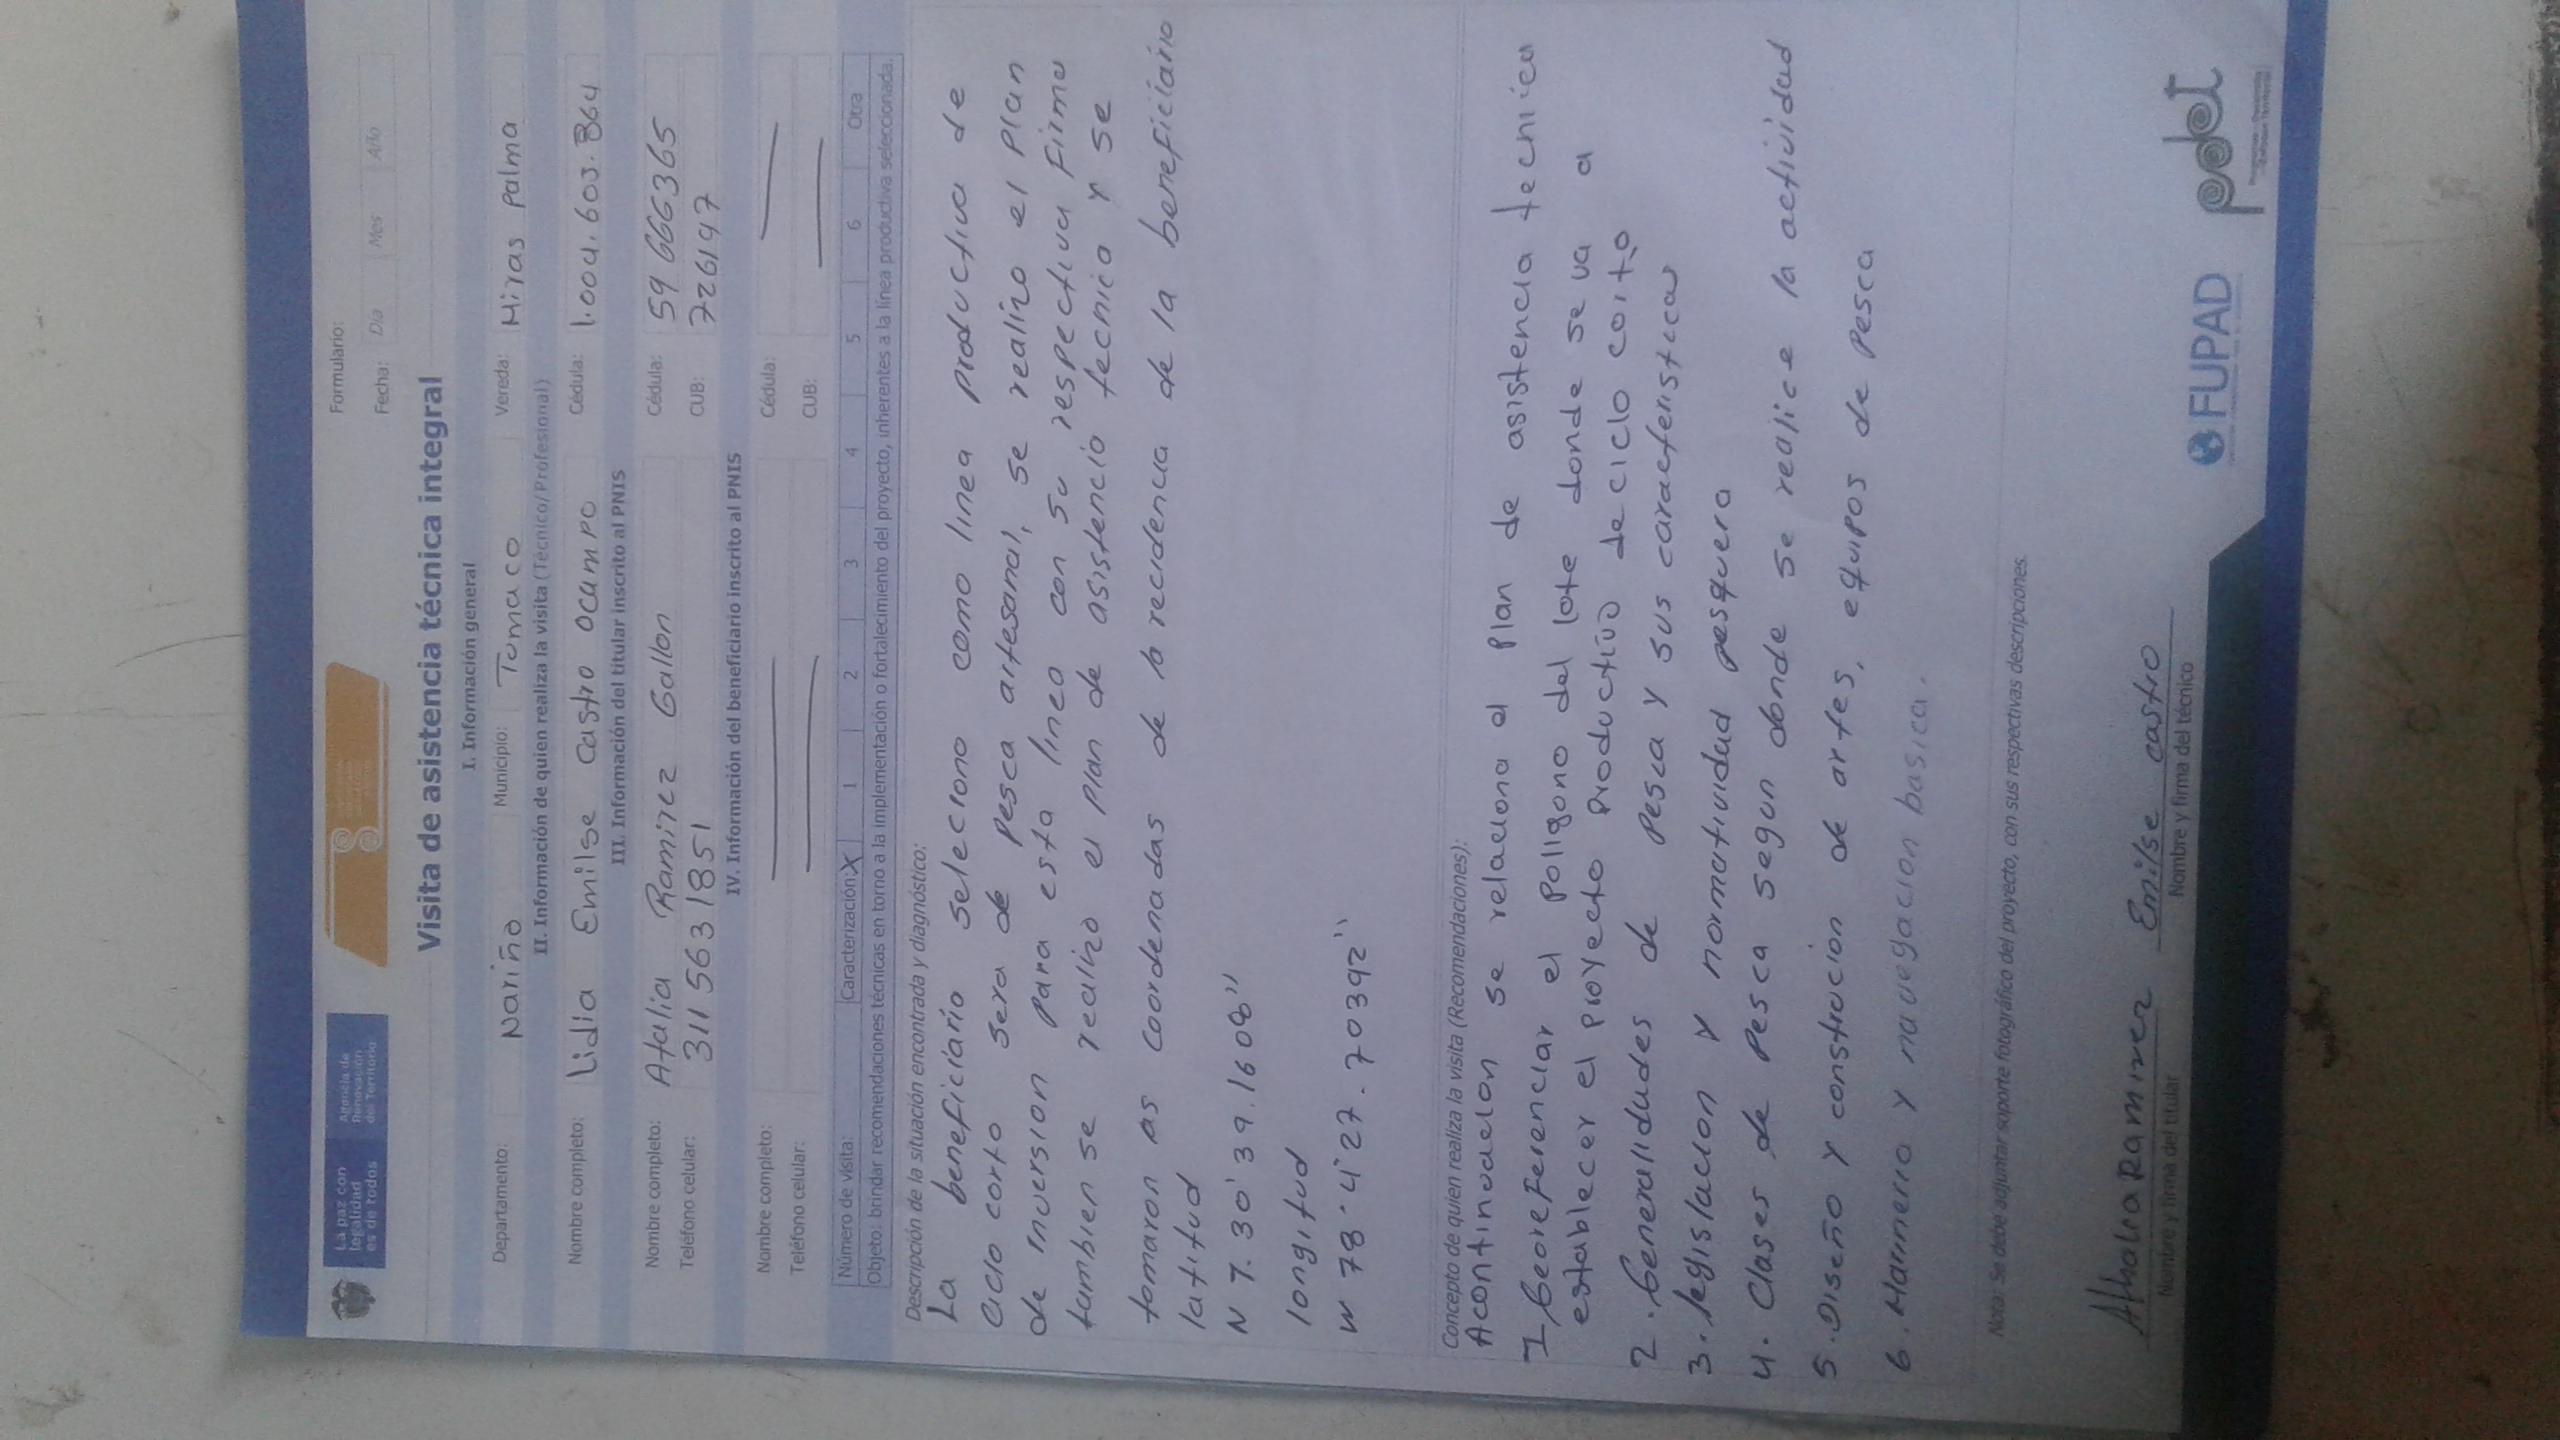 La paz con
legalidad
es de todos
Agencia de
Renovación
del Territorio
Formulario:
Fecha: Día Mes Año
Visita de asistencia técnica integral
I. Información general
Departamento: Nariño Municipio: Tumaco Vereda: Miras Palma
II. Información de quien realiza la visita (Técnico/Profesional)
Nombre completo: Lidia Emilse Castro Ocampo Cédula: 1.004.603.864
III. Información del titular inscrito al PNIS
Nombre completo: Atalia Ramirez Gallon Cédula: 59666365
Teléfono celular: 3115631851 CUB: 726147
IV. Información del beneficiario inscrito al PNIS
Nombre completo: Cédula:
Teléfono celular: CUB:
Número de visita: Caracterización: X 1 2 3 4 5 6 Otra
Objeto: brindar recomendaciones técnicas en torno a la implementación o fortalecimiento del proyecto, inherentes a la línea productiva seleccionada.
Descripción de la situación encontrada y diagnóstico:
La beneficiario selecciono como linea productiva de
ciclo corto sera de pesca artesanal, se realizo el plan
de inversion para esta linea con su respectiva firma
tambien se realizo el plan de asistencia tecnica y se
tomaron as coordenadas de la recidencia de la beneficiario
latitud
N 1. 30' 39.1608"
longitud
W 78. 4' 27. 70392"
Concepto de quien realiza la visita (Recomendaciones):
Acontinuacion se relaciona el Plan de asistencia tecnica
1 Georeferenciar el Poligono del lote donde se va a
establecer el proyecto Productivo de ciclo corto
2. Generalidades de pesca y sus caracteristicas
3. legislacion y normatividad pesquera
4. Clases de pesca segun donde se realice la actividad
5. Diseño y construcion de artes, equipos de pesca
6. Marinerio y navegacion basica.
Nota: Se debe adjuntar soporte fotográfico del proyecto, con sus respectivas descripciones.
Athalia Ramirez
Nombre y firma del titular
Emilse castro
Nombre y firma del técnico
FUPAD
pdet